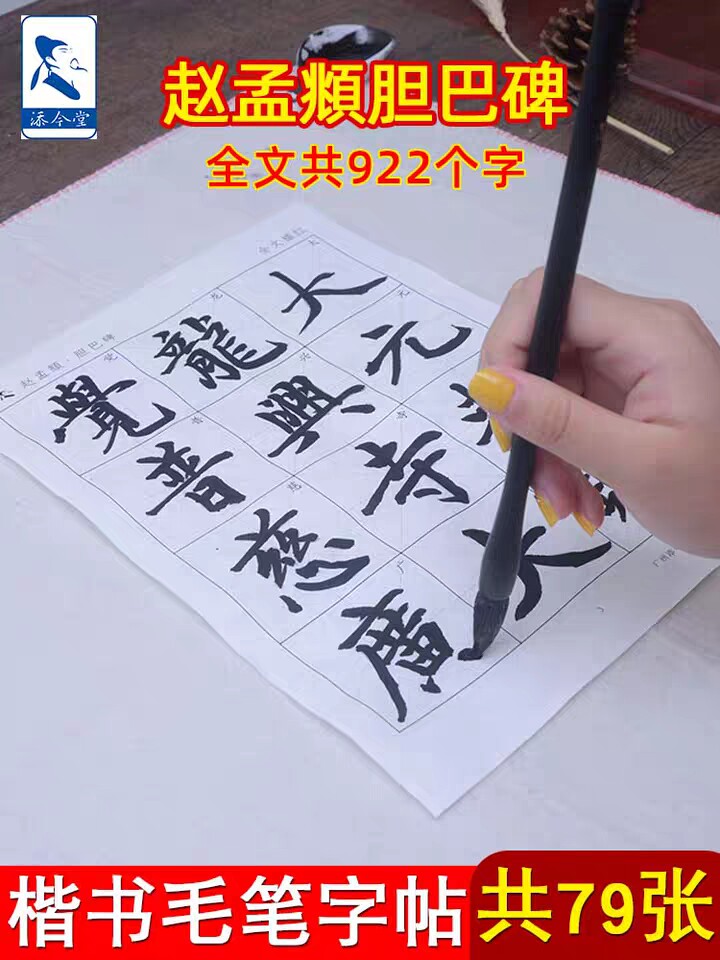 添今堂
赵孟頫胆巴碑
全文共922个字
全文描红
赵孟頫·胆巴碑
大元
龍興寺大
覺普慈廣
楷书毛笔字帖
共79张